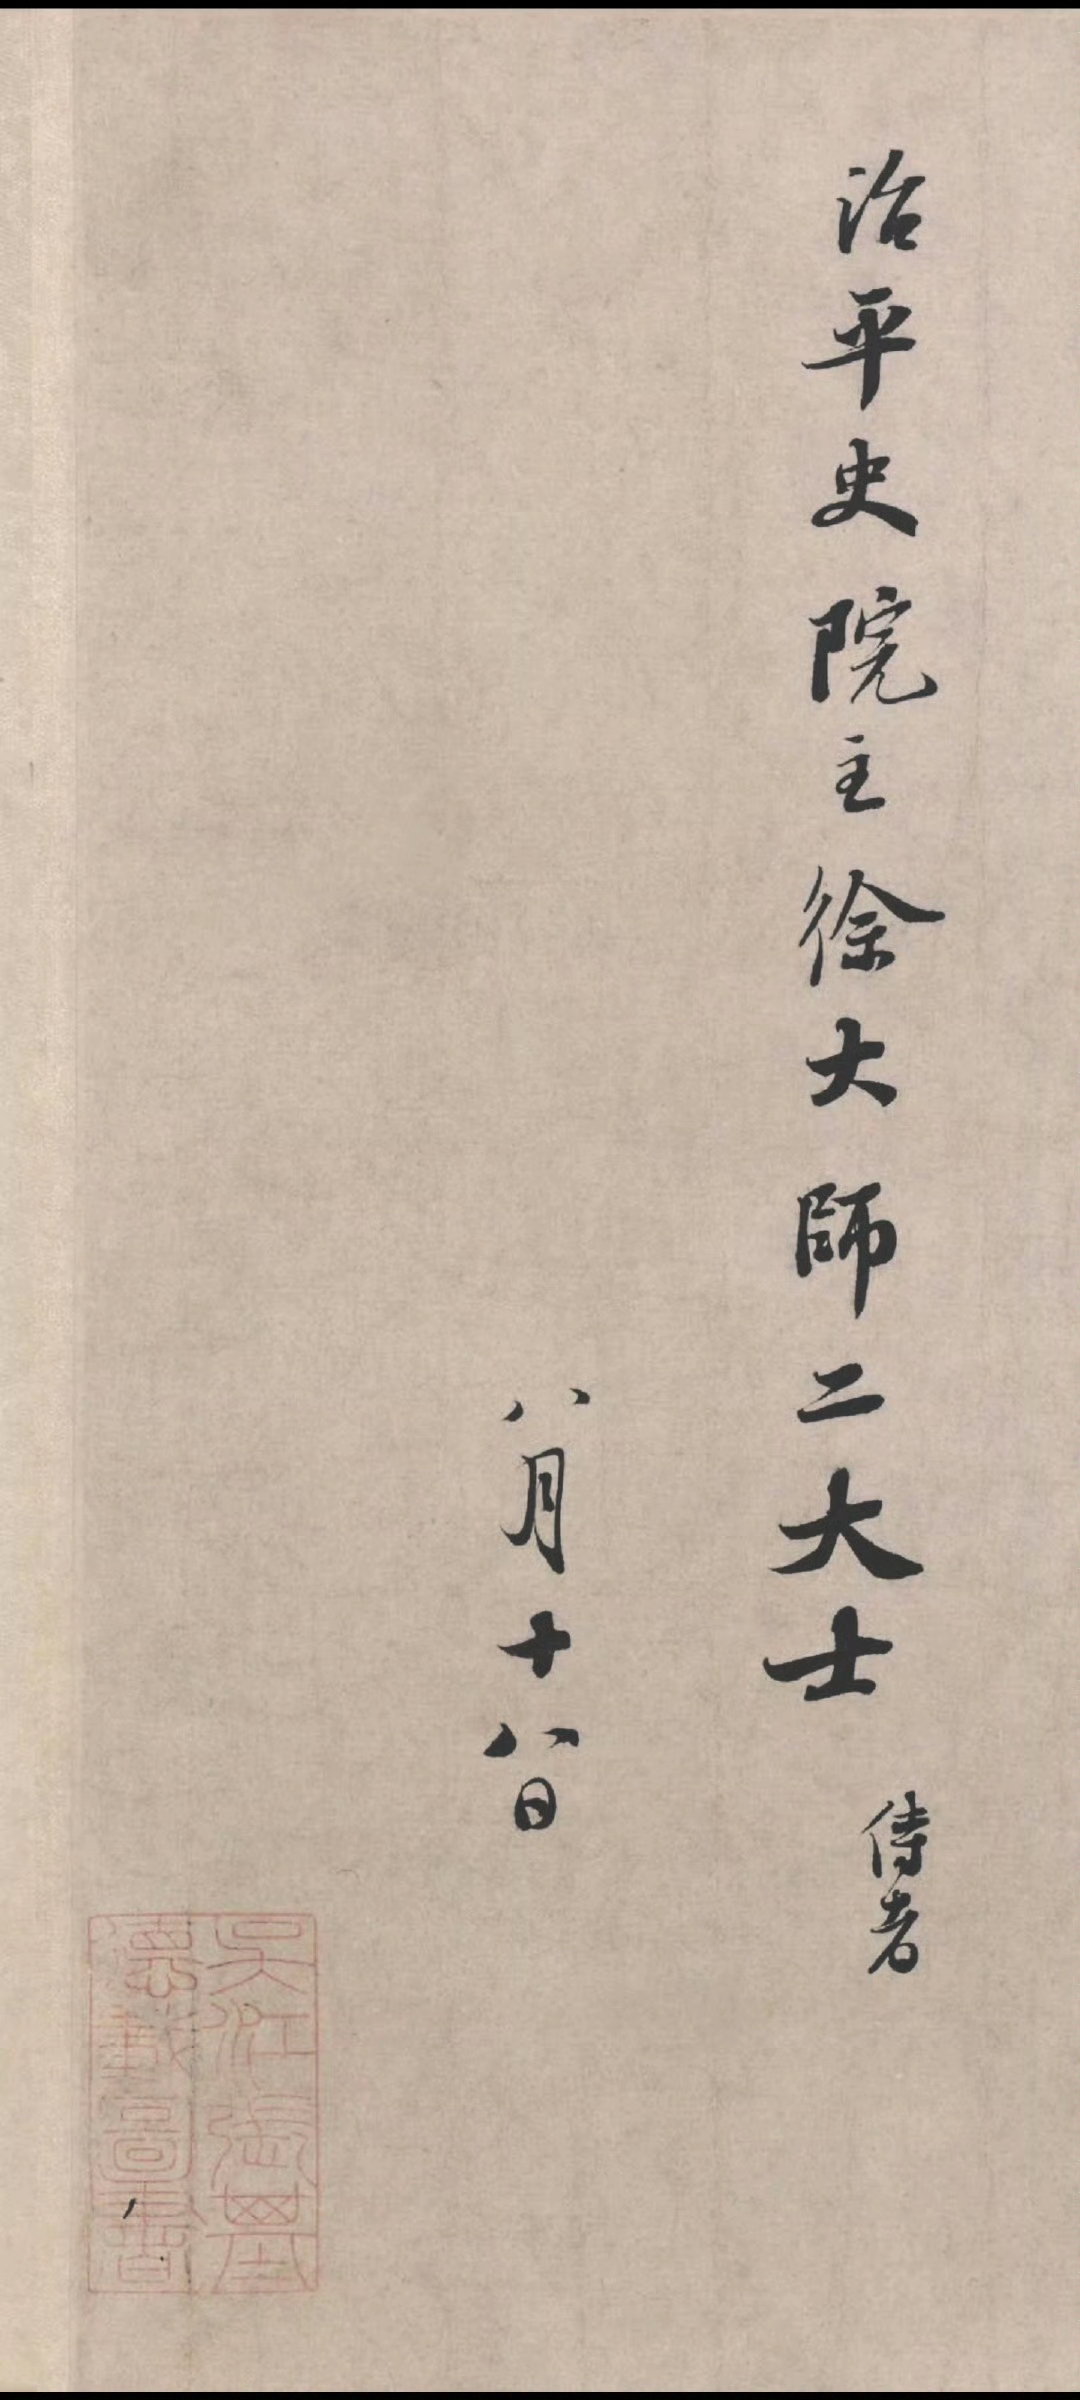 治平史院主徐大師二大士侍者
八月十八日
吳江張基
德載圖書